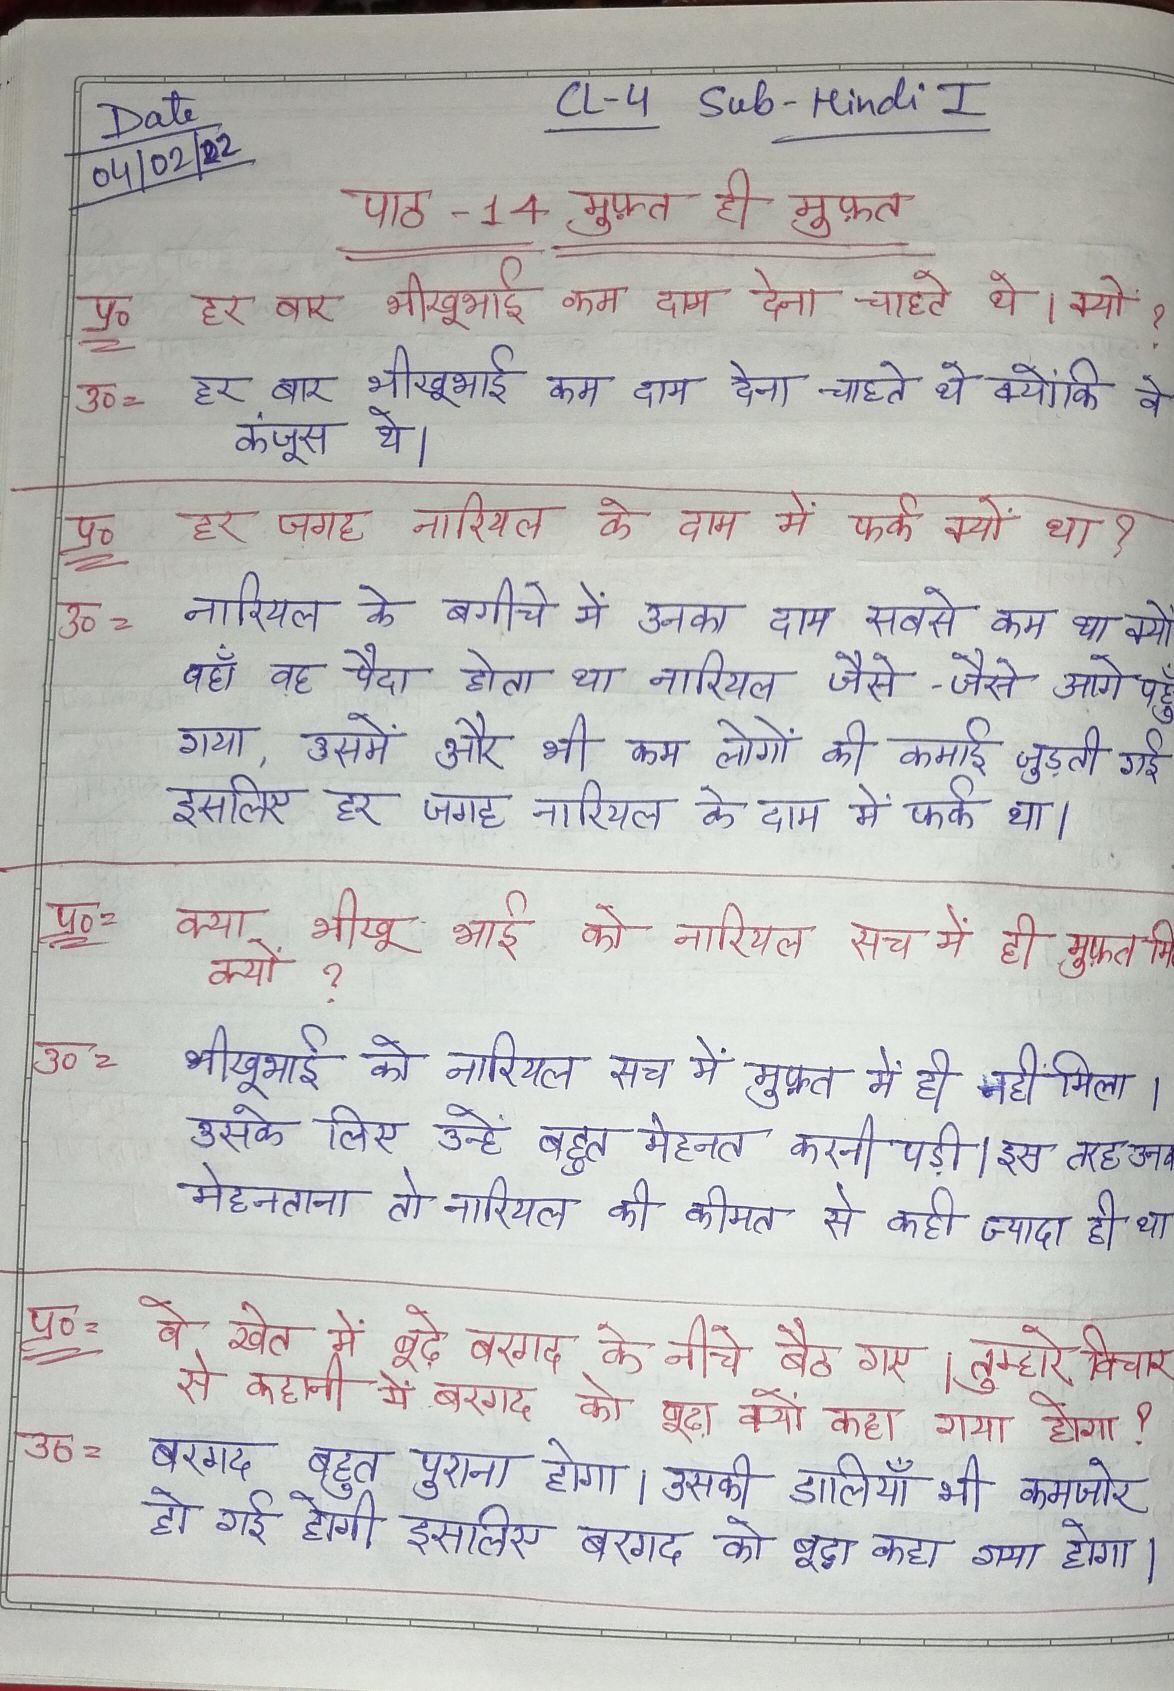 Date
04/02/22
CL-4 Sub-Hindi I
पाठ -14 मुफ़्त ही मुफ़्त
प्र० हर बार भीखूभाई कम दाम देना चाहते थे। क्यों ?
उ०= हर बार भीखूभाई कम दाम देना चाहते थे क्योंकि वे
कंजूस थे।
प्र० हर जगह नारियल के दाम में फर्क क्यों था ?
उ०= नारियल के बगीचे में उनका दाम सबसे कम था क्यों
वहाँ वह पैदा होता था नारियल जैसे -जैसे आगे पहुँ
गया, उसमें और भी कम लोगों की कमाई जुड़ती गई
इसलिए हर जगह नारियल के दाम में फर्क था।
प्र०= क्या भीखू भाई को नारियल सच में ही मुफ़्त मि
क्यों ?
उ०= भीखूभाई को नारियल सच में मुफ़्त में ही नहीं मिला ।
उसके लिए उन्हें बहुत मेहनत करनी पड़ी। इस तरह उनक
मेहनताना तो नारियल की कीमत से कही ज्यादा ही था
प्र०= वे खेत में बूढ़े बरगद के नीचे बैठ गए । तुम्हारे विचार
से कहानी में बरगद को बूढ़ा क्यों कहा गया होगा ?
उ०= बरगद बहुत पुराना होगा। उसकी डालियाँ भी कमजोर
हो गई होगी इसलिए बरगद को बूढ़ा कहा गया होगा।